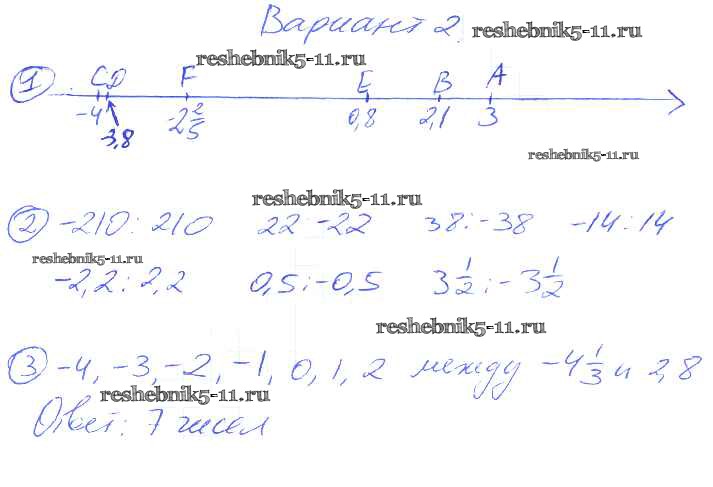 Вариант 2.
reshebnik5-11.ru
reshebnik5-11.ru
1 C D F E B A
-4 -3,8 -2 2/5 0,8 2,1 3
reshebnik5-11.ru
reshebnik5-11.ru
2 -210; 210 22; -22 38; -38 -14; 14
reshebnik5-11.ru
-2,2; 2,2 0,5; -0,5 3 1/2; -3 1/2
reshebnik5-11.ru
3 -4, -3, -2, -1, 0, 1, 2 между -4 1/3 и 2,8
reshebnik5-11.ru
Ответ: 7 чисел